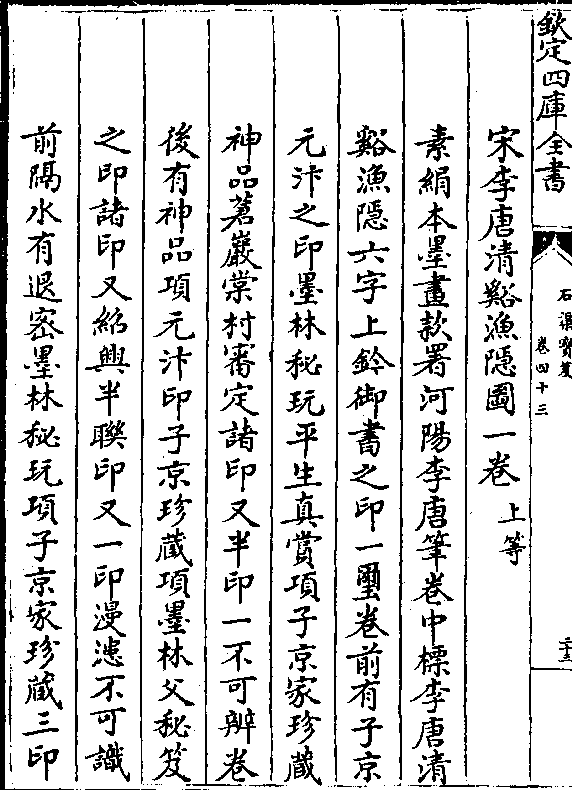 欽定四庫全書
石渠寳笈
卷四十三
二十三
宋李唐清谿漁隱圖一卷 上等
素絹本墨畫款署河陽李唐筆卷中標李唐清
谿漁隱六字上鈐御書之印一璽卷前有子京
元汴之印墨林秘玩平生真賞項子京家珍藏
神品蒼巖棠村審定諸印又半印一不可辨卷
後有神品項元汴印子京珍藏項墨林父秘笈
之印諸印又紹興半聯印又一印漫漶不可識
前隔水有退宻墨林秘玩項子京家珍藏三印